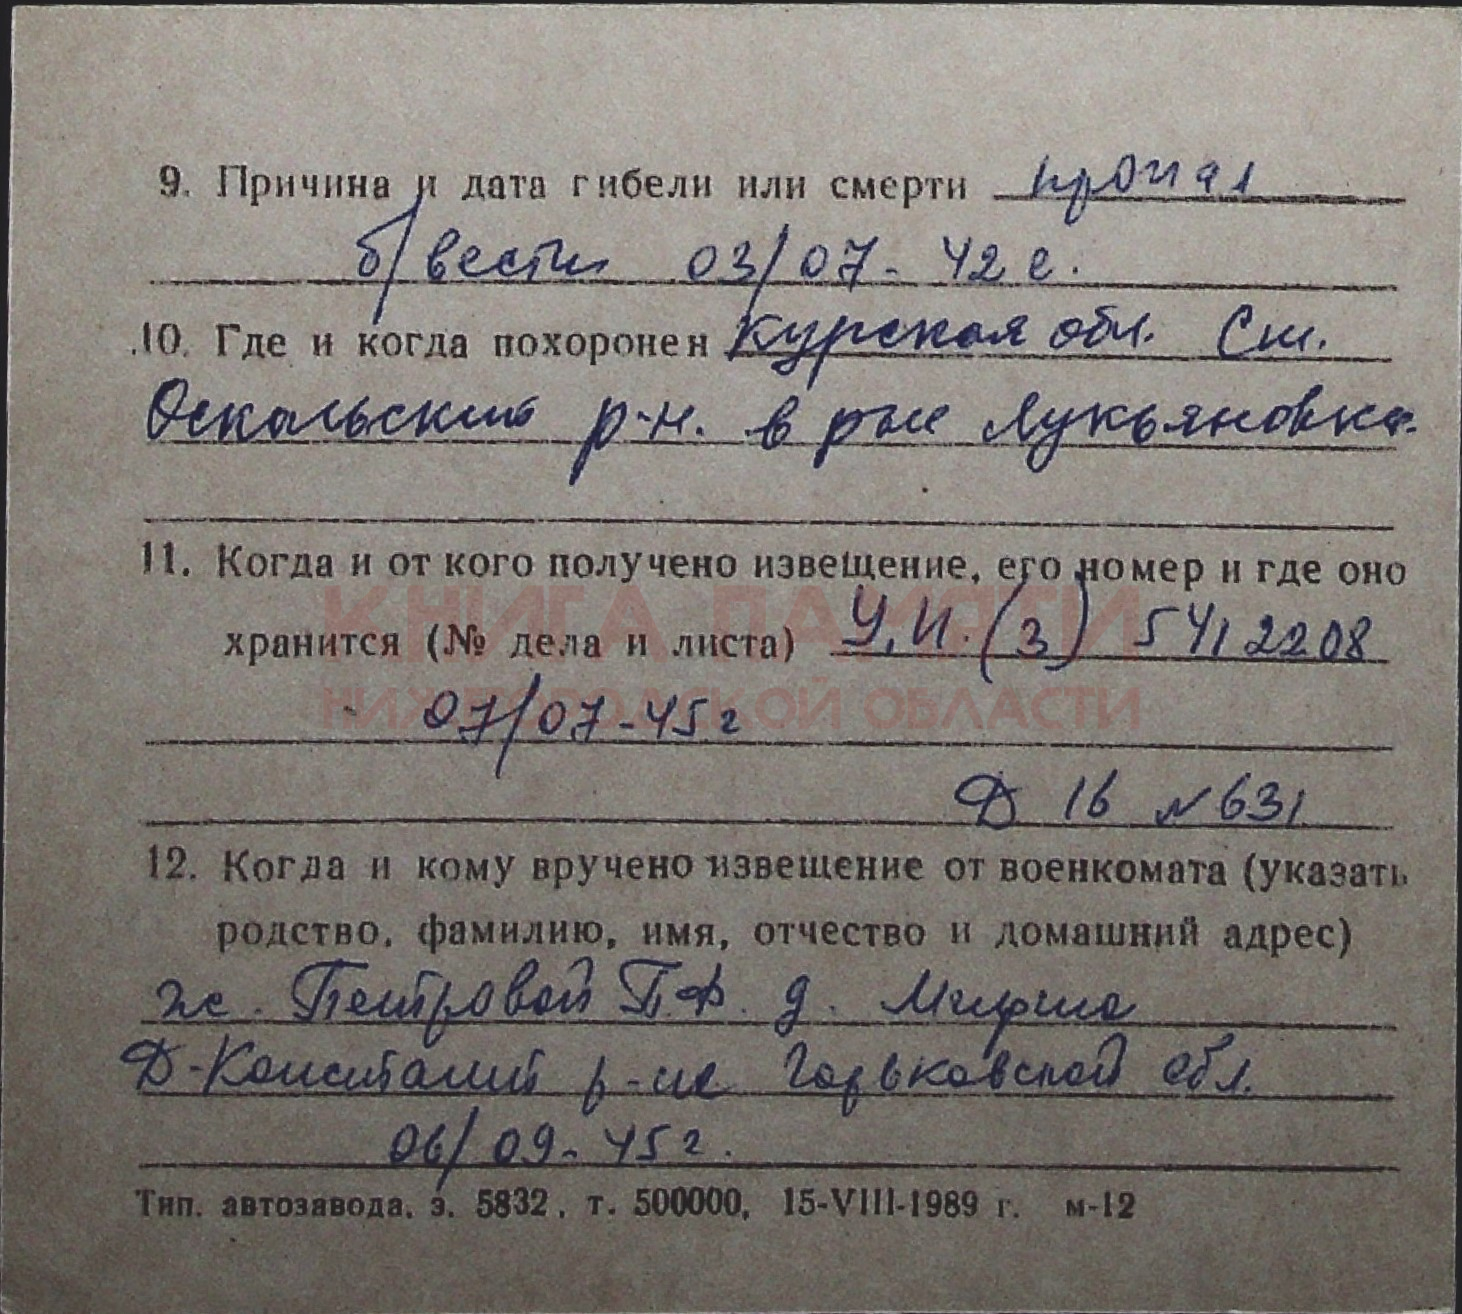 9. Причина и дата гибели или смерти пропал
б/вести 03/07-42 г.
10. Где и когда похоронен Курская обл. Ст.
Оскольский р-н. в р-не Лукьяновка.
11. Когда и от кого получено извещение, его номер и где оно
КНИГА ПАМЯТИ
хранится (№ дела и листа) У.И. (3) 5412208
НИЖЕГОРОДСКОЙ ОБЛАСТИ
07/07-45 г
Д 16 № 631
12. Когда и кому вручено извещение от военкомата (указать
родство, фамилию, имя, отчество и домашний адрес)
ж. Петровой П.Ф. д.
Д-Константин р-на Горьковской обл.
06/09-45 г.
Тип. автозавода, з. 5832, т. 500000, 15-VIII-1989 г. м-12